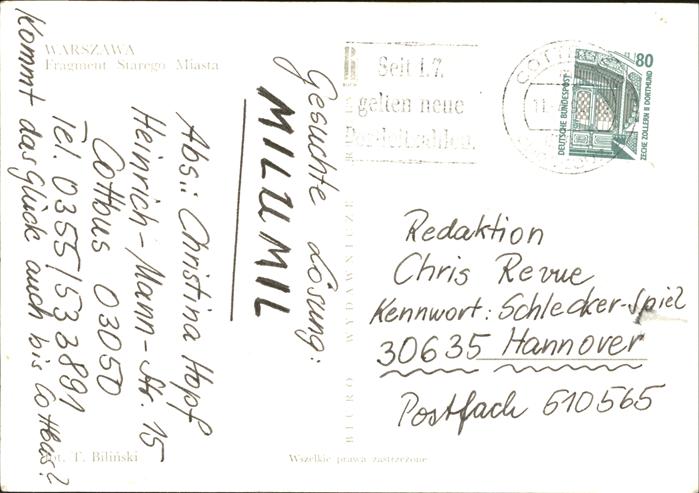 WARSZAWA
Fragment Starego Miasta
Kommt das Glück auch bis Cottbus?
Gesuchte Lösung:
MILUMIL
Abs.: Christina Hopf
Heinrich-Mann-Str. 15
Cottbus 03050
Tel. 0355/533891
Fot. T. Biliński
BIURO WYDAWNICZE
Wszelkie prawa zastrzeżone
Seit 1.7.
gelten neue
Postleitzahlen.
COTTBUS
80
DEUTSCHE BUNDESPOST
ZECHE ZOLLERN II DORTMUND
Redaktion
Chris Revue
Kennwort: Schlecker-Spiel
30635 Hannover
Postfach 510565